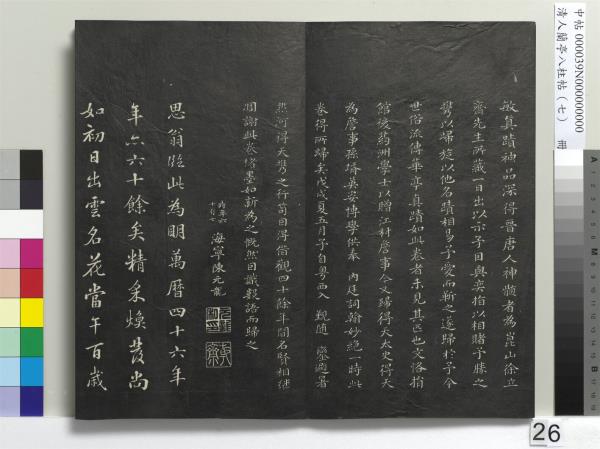 敏真蹟神品深得晉唐人神髓者為崑山徐立
齋先生所藏一日出以示予目與奕指以相賭予勝之
攜以歸旋以他名蹟相易予愛而靳之遂歸於予今
世俗流傳華亭真蹟如此卷者未見其匹也文恪捐
館後藥洲學士以贈江村詹事今又歸得天太史得天
為詹事孫壻奕安博學供奉 內廷詞翰妙絕一時此
卷得所歸矣戊戌夏五月予自粵西入 覲隨 鑾避暑
熱河得天携之行笥因得借觀四十餘年間名賢相繼
凋謝此卷紙墨如新為之慨然因識數語而歸之
時年六十有七 海寧陳元龍
思翁臨此為明萬曆四十六年
年六十餘矣精采煥發尚
如初日出雲名花當午百歲
中帖 000039N000000000
清人蘭亭八柱帖（七） 冊
26